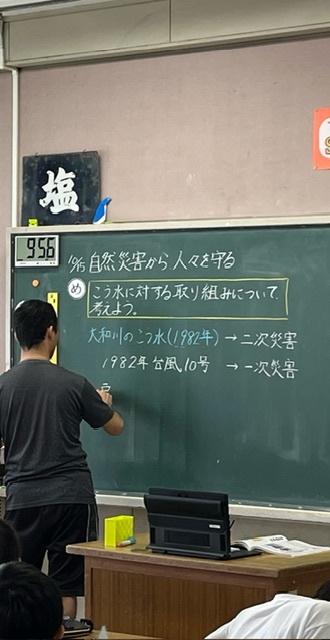 塩
9:56
10/15 自然災害から人々を守る
め こう水に対する取り組みについて
考えよう。
大和川のこう水(1982年) → 二次災害
1982年台風10号 → 一次災害